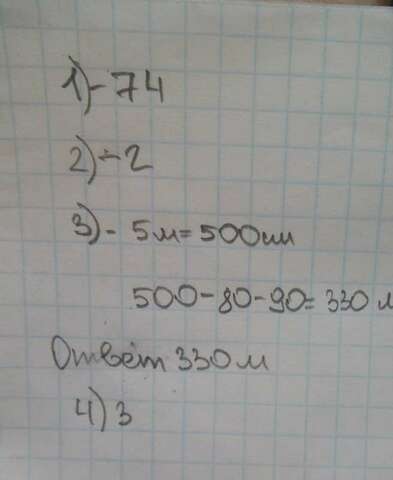 1)-74
2)-2
3)- 5м=500см
500-80-90=330 м
Ответ 330 м
4) 3